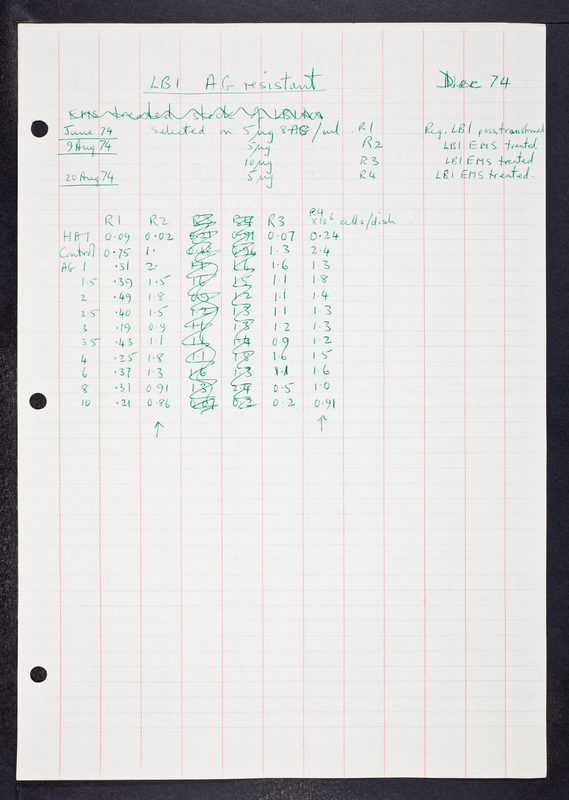 LB1 AG resistant Dec 74
EMS treated stock of
June 74 Selected on 5µg 8AG/ml . R1 Reg. LB1
9 Aug 74 5µg R2 LB1 EMS treated
10µg R3 LB1 EMS treated
20 Aug 74 5µg R4 LB1 EMS treated.
R1 R2 R3 R4 x10⁶ cells/dish
HAT 0.09 0.02 0.07 0.24
Control 0.75 1. 1.3 2.4
AG 1 .31 2. 1.6 1.3
1.5 .39 1.5 1.1 1.8
2 .49 1.8 1.1 1.4
2.5 .40 1.5 1.1 1.3
3 .19 0.9 1.2 1.3
3.5 .43 1.1 0.9 1.2
4 .25 1.8 1.6 1.5
6 .37 1.3 1.1 1.6
8 .31 0.91 0.5 1.0
10 .21 0.86 0.2 0.91
↑ ↑